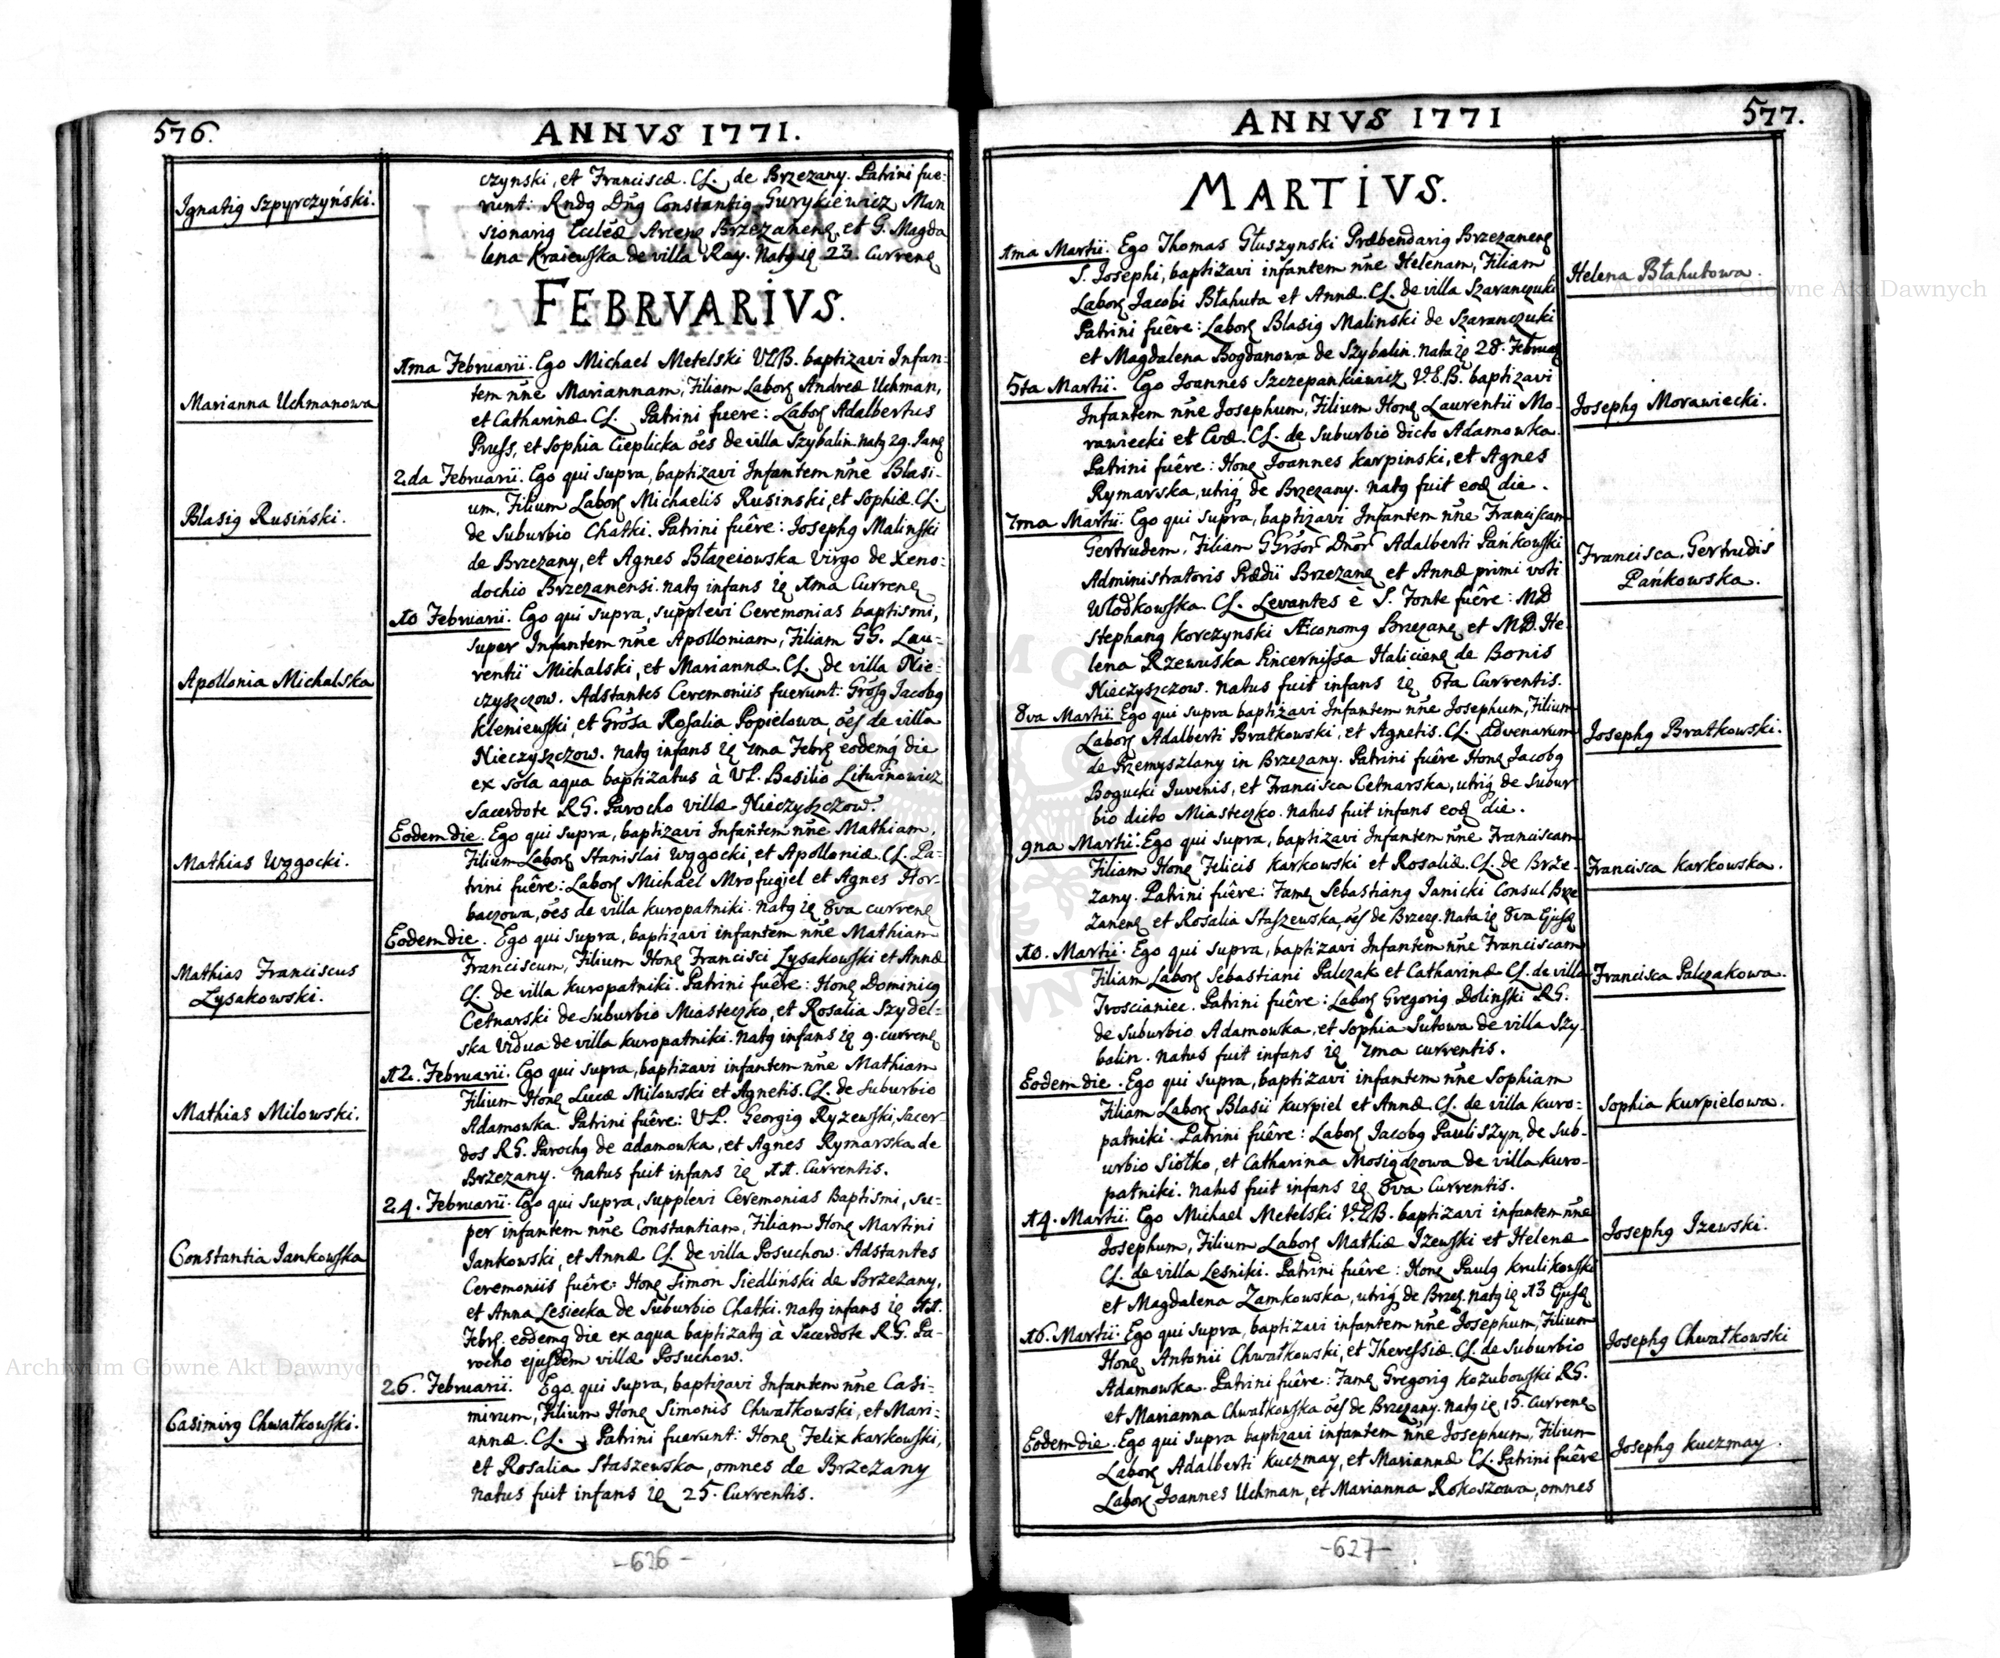 576.
ANNVS 1771.
Ignatiꝰ Szpyrczyński.
czynski, et Franciscæ. CL. de Brzezany. Patrini fue-
runt: Rndꝰ Dnꝰ Constantiꝰ Gurykiewicz Man
sionariꝰ Eccleæ Arcenꝭ Brzezanenꝭ et G. Magda
lena Kraiewska de villa Ray. Natꝰ iꝭ 23. Currenꝭ
FEBRVARIVS.
Marianna Uchmanowa
1ma Februarii. Ego Michael Metelski V.E.B. baptizavi Infan-
tem nñe Mariannam, Filiam Laborꝭ Andreæ Uchman,
et Catharinæ CL. Patrini fuere: Laborꝭ Adalbertus
Pruss, et Sophia Cieplicka oẽs de villa Szybalin. natꝰ 29. Janꝭ
Blasiꝰ Rusiński.
2.da Februarii. Ego qui supra, baptizavi Infantem nñe Blasi-
um, Filium Laborꝭ Michaelis Rusinski, et Sophiæ CL.
de Suburbio Chatki. Patrini fuêre: Josephꝰ Malinski
de Brzezany, et Agnes Błazeiowska Virgo de Xeno-
dochio Brzezanensi. natꝰ infans iꝭ 1ma Currenꝭ
Apollonia Michalska
10 Februarii. Ego qui supra, supplevi Ceremonias baptismi,
super Infantem nñe Apolloniam, Filiam GG. Lau-
rentii Michalski, et Mariannæ. CL. de villa Nie-
czyszczow. Adstantes Ceremoniis fuerunt: Grosꝰ Jacobꝰ
Kleniewski, et Grosa Rosalia Popielowa, oẽs de villa
Nieczyszczow. natꝰ infans iꝭ 7ma Febrꝭ eodemq́ die
ex sola aqua baptizatus à VP. Basilio Litwinowicz
Sacerdote R.G. Parocho villæ Nieczyszczow.
Mathias Wygocki.
Eodem die. Ego qui supra, baptizavi Infantem nñe Mathiam,
Filium Laborꝭ Stanislai Wygocki, et Apolloniæ. CL. Pa-
trini fuêre: Laborꝭ Michael Mrofugiel et Agnes Hor-
baczowa, oẽs de villa Kuropatniki. natꝰ iꝭ 8va currenꝭ
Mathias Franciscus
Lysakowski.
Eodem die. Ego qui supra, baptizavi infantem nñe Mathiam
Franciscum, Filium Honꝭ Francisci Lysakowski et Annæ
CL. de villa Kuropatniki. Patrini fuêre: Honꝭ Dominicꝰ
Cetnarski de Suburbio Miasteczko, et Rosalia Szydel-
ska Vidua de villa Kuropatniki. natꝰ infans iꝭ 9. currenꝭ
Mathias Milowski.
12. Februarii. Ego qui supra, baptizavi infantem nñe Mathiam
Filium Honꝭ Lucæ Milowski et Agnetis. CL. de Suburbio
Adamowka. Patrini fuêre: VP. Georgiꝰ Ryzewski, Sacer-
dos R.G. Parochꝰ de adamowka, et Agnes Rymarska de
Brzezany. natus fuit infans iꝭ 11. Currentis.
Constantia Jankowska
24. Februarii. Ego qui supra, supplevi Ceremonias Baptismi, su-
per infantem nñe Constantiam, Filiam Honꝭ Martini
Jankowski, et Annæ CL. de villa Posuchow. Adstantes
Ceremoniis fuêre: Honꝭ Simon Siedliński de Brzezany,
et Anna Lesiecka de Suburbio Chatki. natꝰ infans iꝭ 11.
Febrꝭ. eodemq die ex aqua baptizatꝰ à Sacerdote R.G. Pa-
rocho ejusdem villæ Posuchow.
Casimirꝰ Chwałkowski.
26. Februarii. Ego qui supra, baptizavi Infantem nñe Casi-
mirum, Filium Honꝭ Simonis Chwałkowski, et Mari-
annæ. CL. Patrini fuerunt: Honꝭ Felix Karkowski,
et Rosalia Staszewska, omnes de Brzezany
natus fuit infans iꝭ 25. Currentis.
-626-
ANNVS 1771
577.
MARTIVS.
1ma Martii. Ego Thomas Głuszynski Præbendariꝰ Brzezanenꝭ
S. Josephi, baptizavi infantem nñe Helenam, Filiam
Laborꝭ Jacobi Błahuta et Annæ. CL. de villa Szaranczuki
Patrini fuêre: Laborꝭ Blasiꝰ Malinski de Szaranczuki
et Magdalena Bogdanowa de Szybalin. nata iꝭ 28. Februaꝭ
Helena Błahutowa.
5ta Martii. Ego Joannes Szczepankiewicz V.E.B. baptizavi
Infantem nñe Josephum, Filium Honꝭ Laurentii Mo-
rawiecki et Evæ. CL. de Suburbio dicto Adamowka.
Patrini fuêre: Honꝭ Joannes Karpinski, et Agnes
Rymarska, utriq́ de Brzezany. natꝰ fuit eoꝭ die.
Josephꝰ Morawiecki.
7ma Martii. Ego qui supra, baptizavi Infantem nñe Franciscam
Gertrudem, Filiam GGrsor Dnor Adalberti Pańkowski
Administratoris Prædii Brzezanꝭ et Annæ primi voti
Włodkowska. CL. Levantes è S. Fonte fuêre: MD
Stephanꝰ Korczynski Æconomꝰ Brzezanꝭ et MD. He-
lena Rzewuska Pincernissa Halicienꝭ de Bonis
Nieczyszczow. natus fuit infans iꝭ 6ta Currentis.
Francisca Gertrudis
Pańkowska.
8va Martii. Ego qui supra baptizavi Infantem nñe Josephum, Filium
Laborꝭ Adalberti Bratkowski, et Agnetis. CL. advenarum
de Przemyszlany in Brzezany. Patrini fuêre Honꝭ Jacobꝰ
Bogucki Juvenis, et Francisca Cetnarska, utriq́ de Subur
bio dicto Miasteczko. natus fuit infans eoꝭ die.
Josephꝰ Bratkowski.
9na Martii. Ego qui supra, baptizavi Infantem nñe Franciscam
Filiam Honꝭ Felicis Karkowski et Rosaliæ. CL. de Brze-
zany. Patrini fuêre: Famꝭ Sebastianꝰ Janicki Consul Brze
zanenꝭ et Rosalia Staszewska, oẽs de Brzezꝭ. Nata iꝭ 8va Ejusꝭ
Francisca Karkowska.
10. Martii. Ego qui supra, baptizavi Infantem nñe Franciscam
Filiam Laborꝭ Sebastiani Palczak et Catharinæ CL. de villa
Troscianiec. Patrini fuêre: Laborꝭ Gregoriꝰ Dolinski RG.
de Suburbio Adamowka, et Sophia Sutowa de villa Szy-
balin. natus fuit infans iꝭ 7ma currentis.
Francisca Palczakowa.
Eodem die. Ego qui supra, baptizavi infantem nñe Sophiam
Filiam Laborꝭ Blasii Kurpiel et Annæ CL. de villa Kuro-
patniki. Patrini fuêre: Laborꝭ Jacobꝰ Pauliszyn, de Sub-
urbio Siołko, et Catharina Mosiądzowa de villa Kuro-
patniki. natus fuit infans iꝭ 8va Currentis.
Sophia Kurpielowa.
14. Martii. Ego Michael Metelski V.E.B. baptizavi infantem nñe
Josephum, Filium Laborꝭ Mathiæ Izewski et Helenæ
CL. de villa Lesniki. Patrini fuêre: Honꝭ Paulꝰ Krulikowski
et Magdalena Zamkowska, utriq́ de Brzezꝭ. natꝰ iꝭ 13 Ejusꝭ
Josephꝰ Izewski.
16. Martii. Ego qui supra, baptizavi infantem nñe Josephum, Filium
Honꝭ Antonii Chwałkowski, et Theressiæ. CL. de Suburbio
Adamowka. Patrini fuêre: Famꝭ Gregoriꝰ Kozubowski RG.
et Marianna Chwałkowska oẽs de Brzezany. natꝰ iꝭ 15. Currenꝭ
Josephꝰ Chwałkowski
Eodem die. Ego qui supra baptizavi infantem nñe Josephum, Filium
Laborꝭ Adalberti Kuczmay, et Mariannæ CL. Patrini fuêre
Laborꝭ Joannes Uchman, et Marianna Rokoszowa, omnes
Josephꝰ Kuczmay.
-627-
Archiwum Główne Akt Dawnych
Archiwum Główne Akt Dawnych